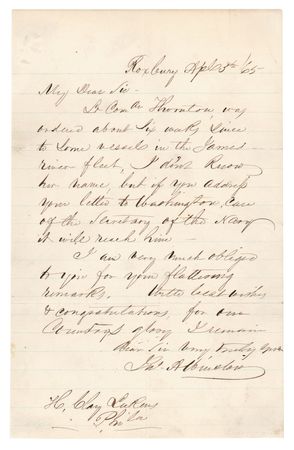 Roxbury Apl 5th /65
My Dear Sir -
Lt Com Dr Thornton was
ordered about six weeks since
to some vessels in the James
river fleet, I don't know
her name, but if you address
your letter to Washington, Care
of the Secretary of the Navy
it will reach him -
I am very much obliged
to you for your flattering
remarks. With best wishes
& congratulations, for our
Countrys glory I remain
Dear Sir very truly yours
Jno A Winslow
H. Clay Lukens
Phila